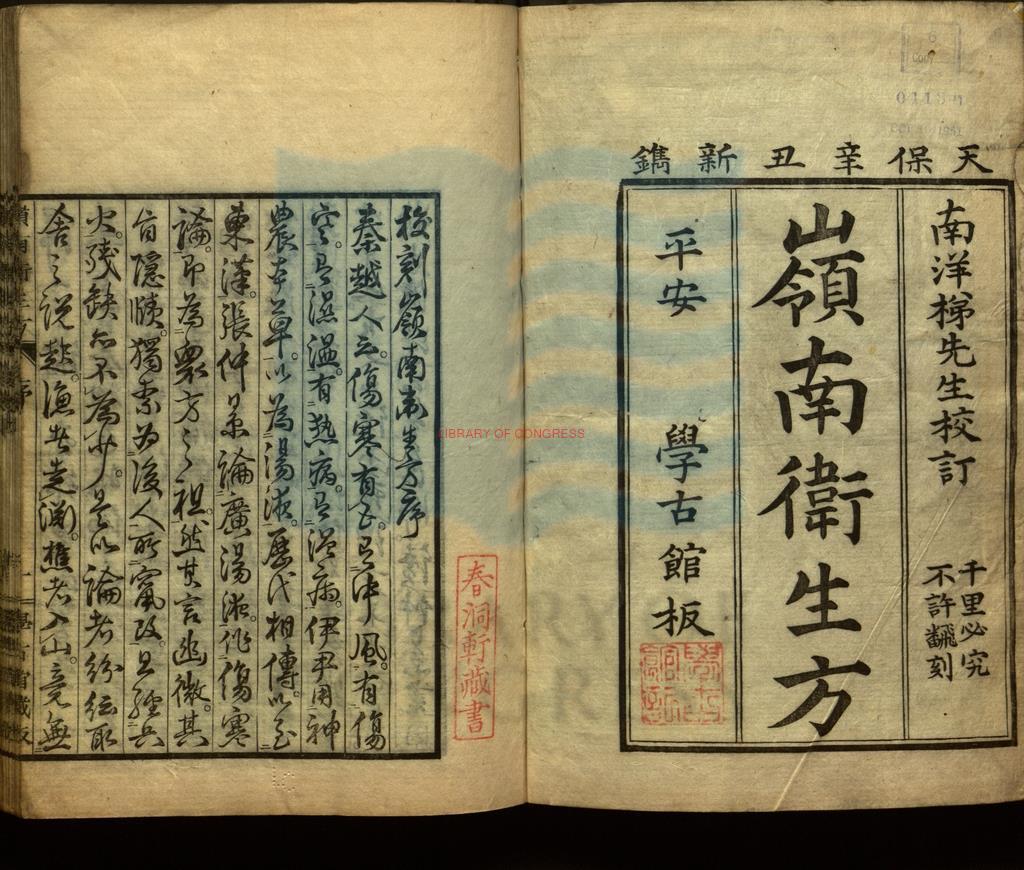 天保辛丑新鐫
南洋梯先生校訂
千里必究
不許飜刻
嶺南衛生方
平安 學古館板
6
Copy
LIBRARY OF CONGRESS
春洞軒藏書
校刻嶺南衛生方序
秦越人云。傷寒有五。曰中風。有傷
寒。曰濕溫。有熱病。曰溫病。伊尹用神
農本草。以為湯液。歷代相傳。以至
東漢。張仲景論廣湯液。作傷寒
論。即為眾方之祖。然其言幽微。其
旨隱賾。獨
為後人所竄改。且經兵
火。殘缺亦不為少。是以論者紛紜取
舍之說起。漁者走淵。樵者入山。竟無